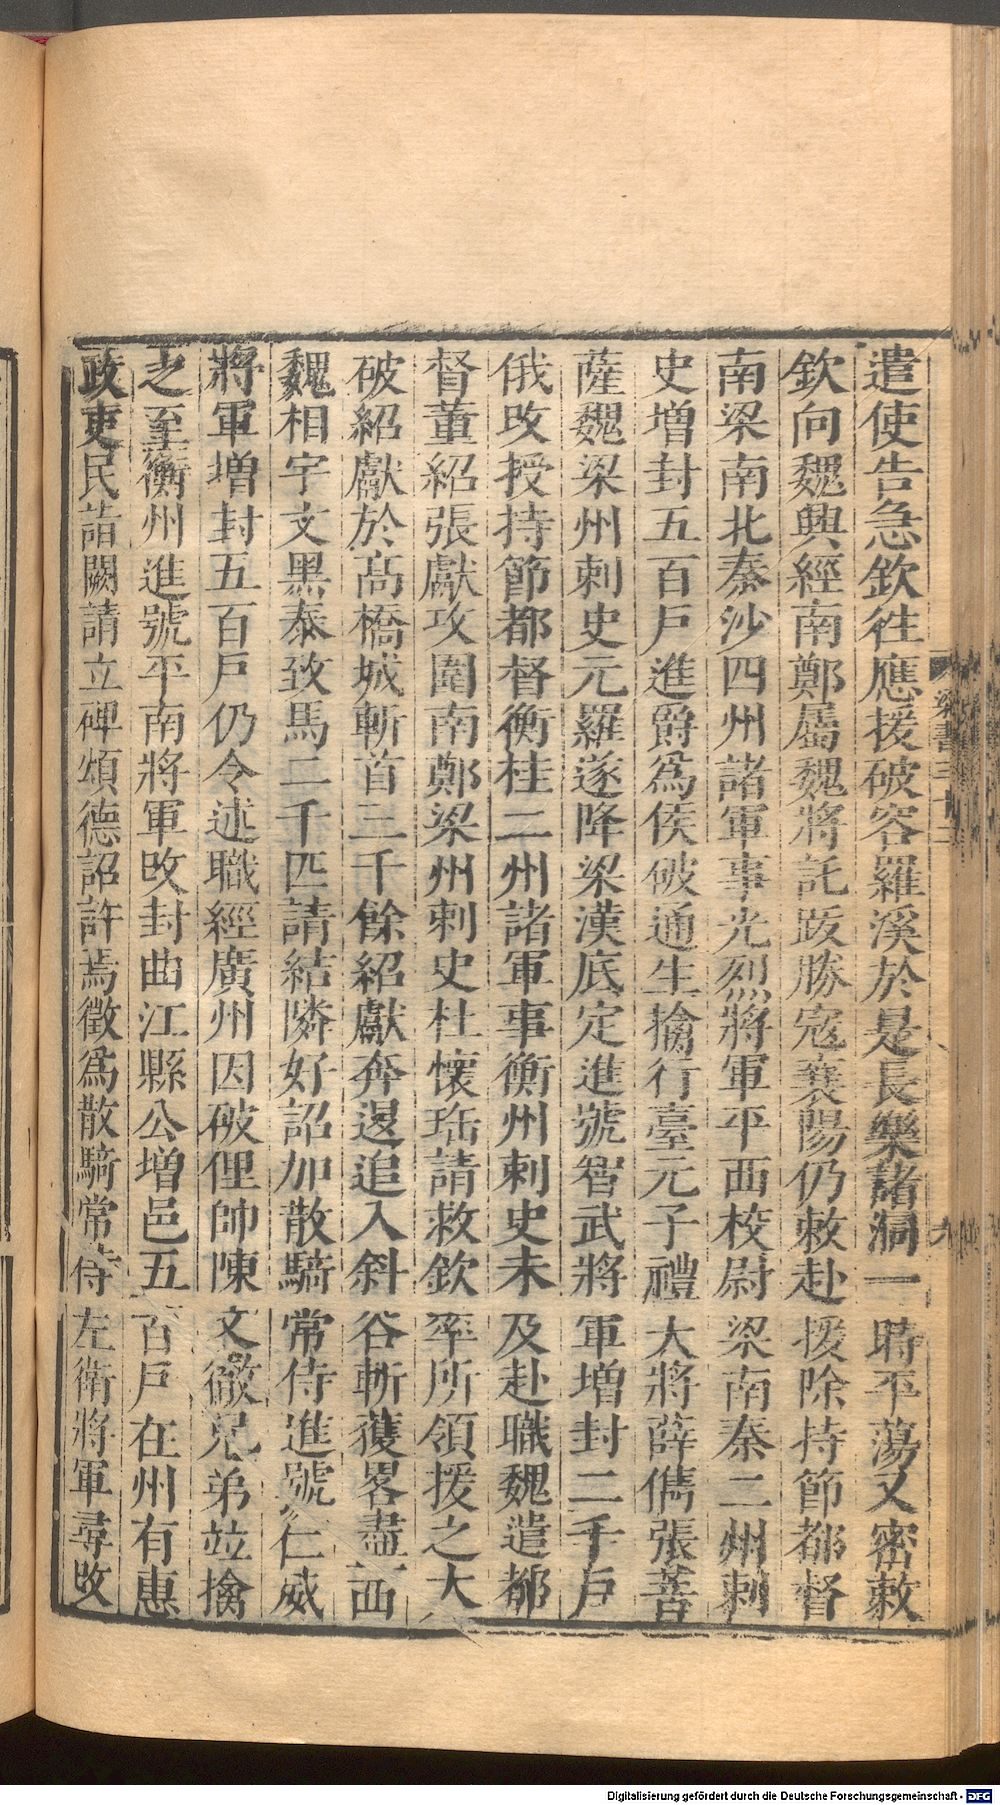 遣使告急欽往應援破容羅溪於是長樂諸洞一時平蕩又密敕
欽向魏興經南鄭屬魏將託跋勝寇襄陽仍敕赴援除持節都督
南梁南北秦沙四州諸軍事光烈將軍平西校尉梁南秦二州刺
史增封五百戶進爵爲侯破通生擒行臺元子禮大將薛儁張菩
薩魏梁州刺史元羅遂降梁漢底定進號智武將軍增封二千戶
俄改授持節都督衡桂二州諸軍事衡州刺史未及赴職魏遣都
督董紹張獻攻圍南鄭梁州刺史杜懷瑶請救欽率所領援之大
破紹獻於高橋城斬首三千餘紹獻奔退追入斜谷斬獲畧盡西
魏相宇文黑泰致馬二千匹請結隣好詔加散騎常侍進號仁威
將軍增封五百戶仍令述職經廣州因破俚帥陳文徹兄弟竝擒
之至衡州進號平南將軍改封曲江縣公增邑五百戶在州有惠
政吏民詣闕請立碑頌德詔許焉徵爲散騎常侍左衛將軍尋改
梁書三十二
九
Digitalisierung gefördert durch die Deutsche Forschungsgemeinschaft - DFG